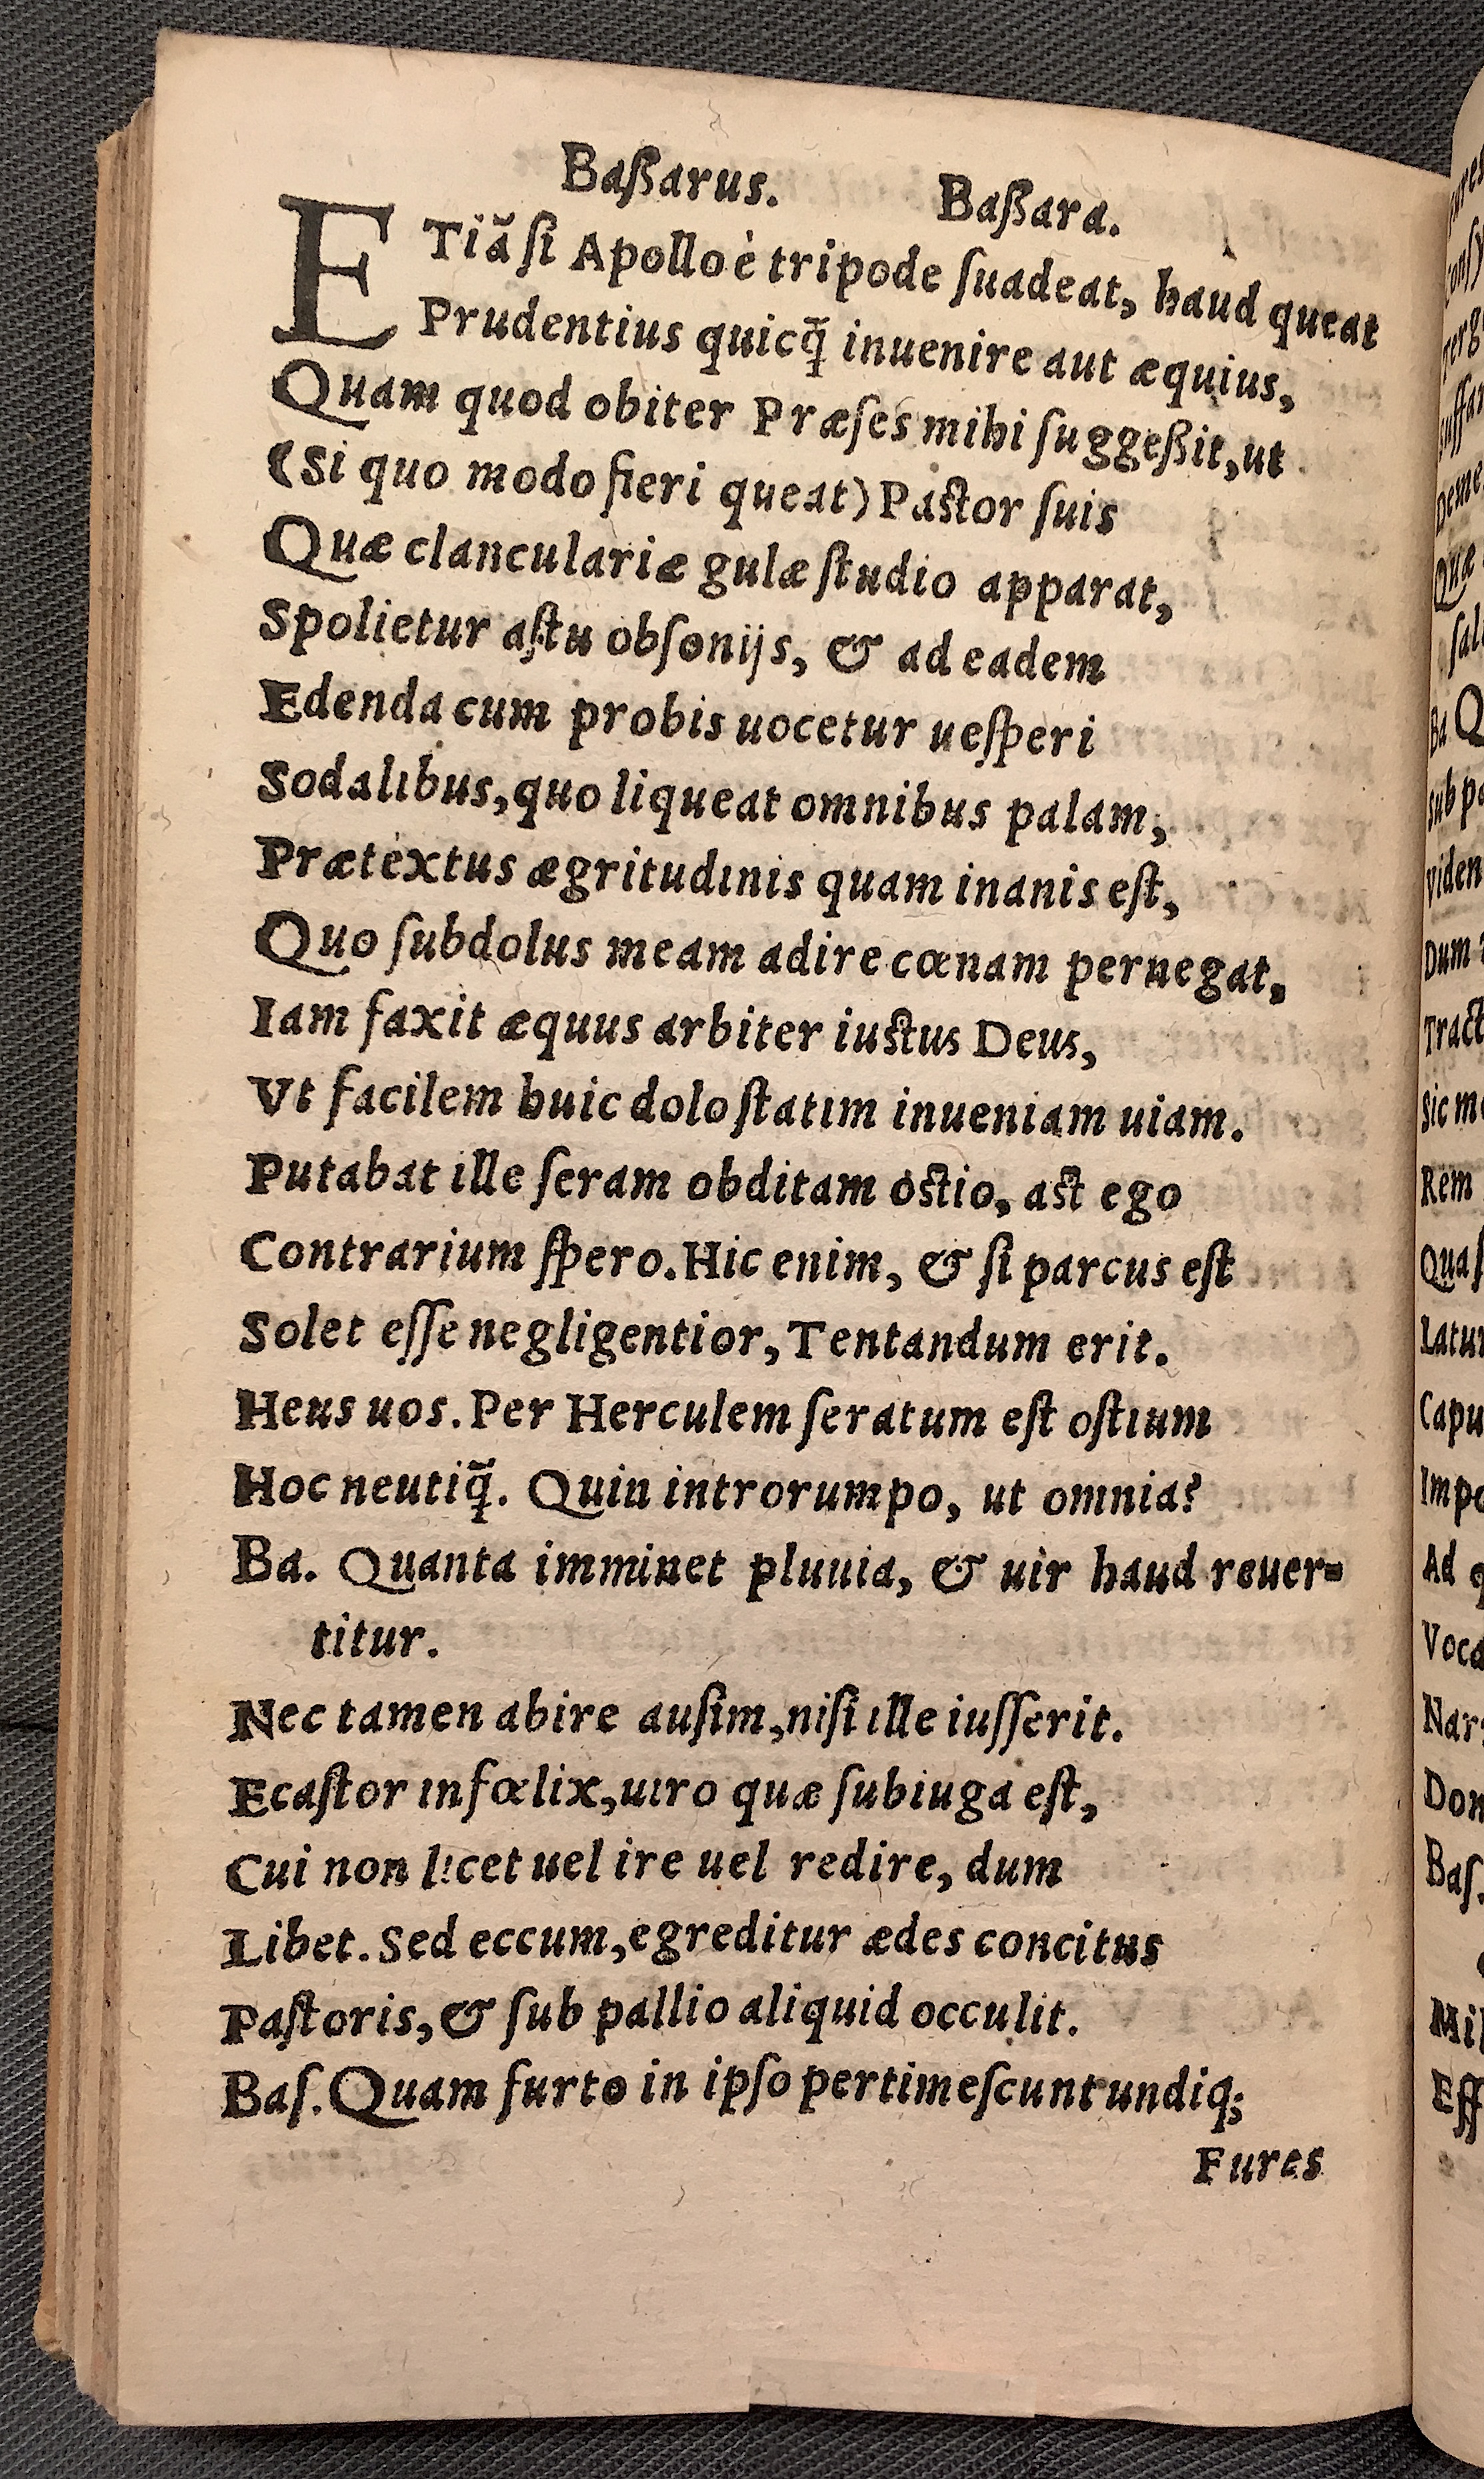 Baßarus. Baßara.
ETiā ſi Apollo è tripode ſuadeat, haud queat
Prudentius quicq̃ inuenire aut æquius,
Quam quod obiter Præſes mihi ſuggeßit, ut
(Si quo modo fieri queat) Paſtor ſuis
Quæ clanculariæ gulæ ſtudio apparat,
Spolietur aſtu obſonijs, & ad eadem
Edenda cum probis uocetur ueſperi
Sodalibus, quo liqueat omnibus palam,
Prætextus ægritudinis quam inanis eſt,
Quo ſubdolus meam adire cœnam pernegat,
Iam faxit æquus arbiter iuſtus Deus,
Vt facilem huic dolo ſtatim inueniam uiam.
Putabat ille ſeram obditam oſtio, aſt ego
Contrarium ſpero. Hic enim, & ſi parcus eſt
Solet eſſe negligentior, Tentandum erit.
Heus uos. Per Herculem ſeratum eſt oſtium
Hoc neutiq̃. Quin introrumpo, ut omnia?
Ba. Quanta imminet pluuia, & uir haud reuer=
titur.
Nec tamen abire auſim, niſi ille iuſſerit.
Ecaſtor infœlix, uiro quæ ſubiuga eſt,
Cui non licet uel ire uel redire, dum
Libet. Sed eccum, egreditur ædes concitus
Paſtoris, & ſub pallio aliquid occulit.
Baſ. Quam furto in ipſo pertimeſcunt undiq;
Fures